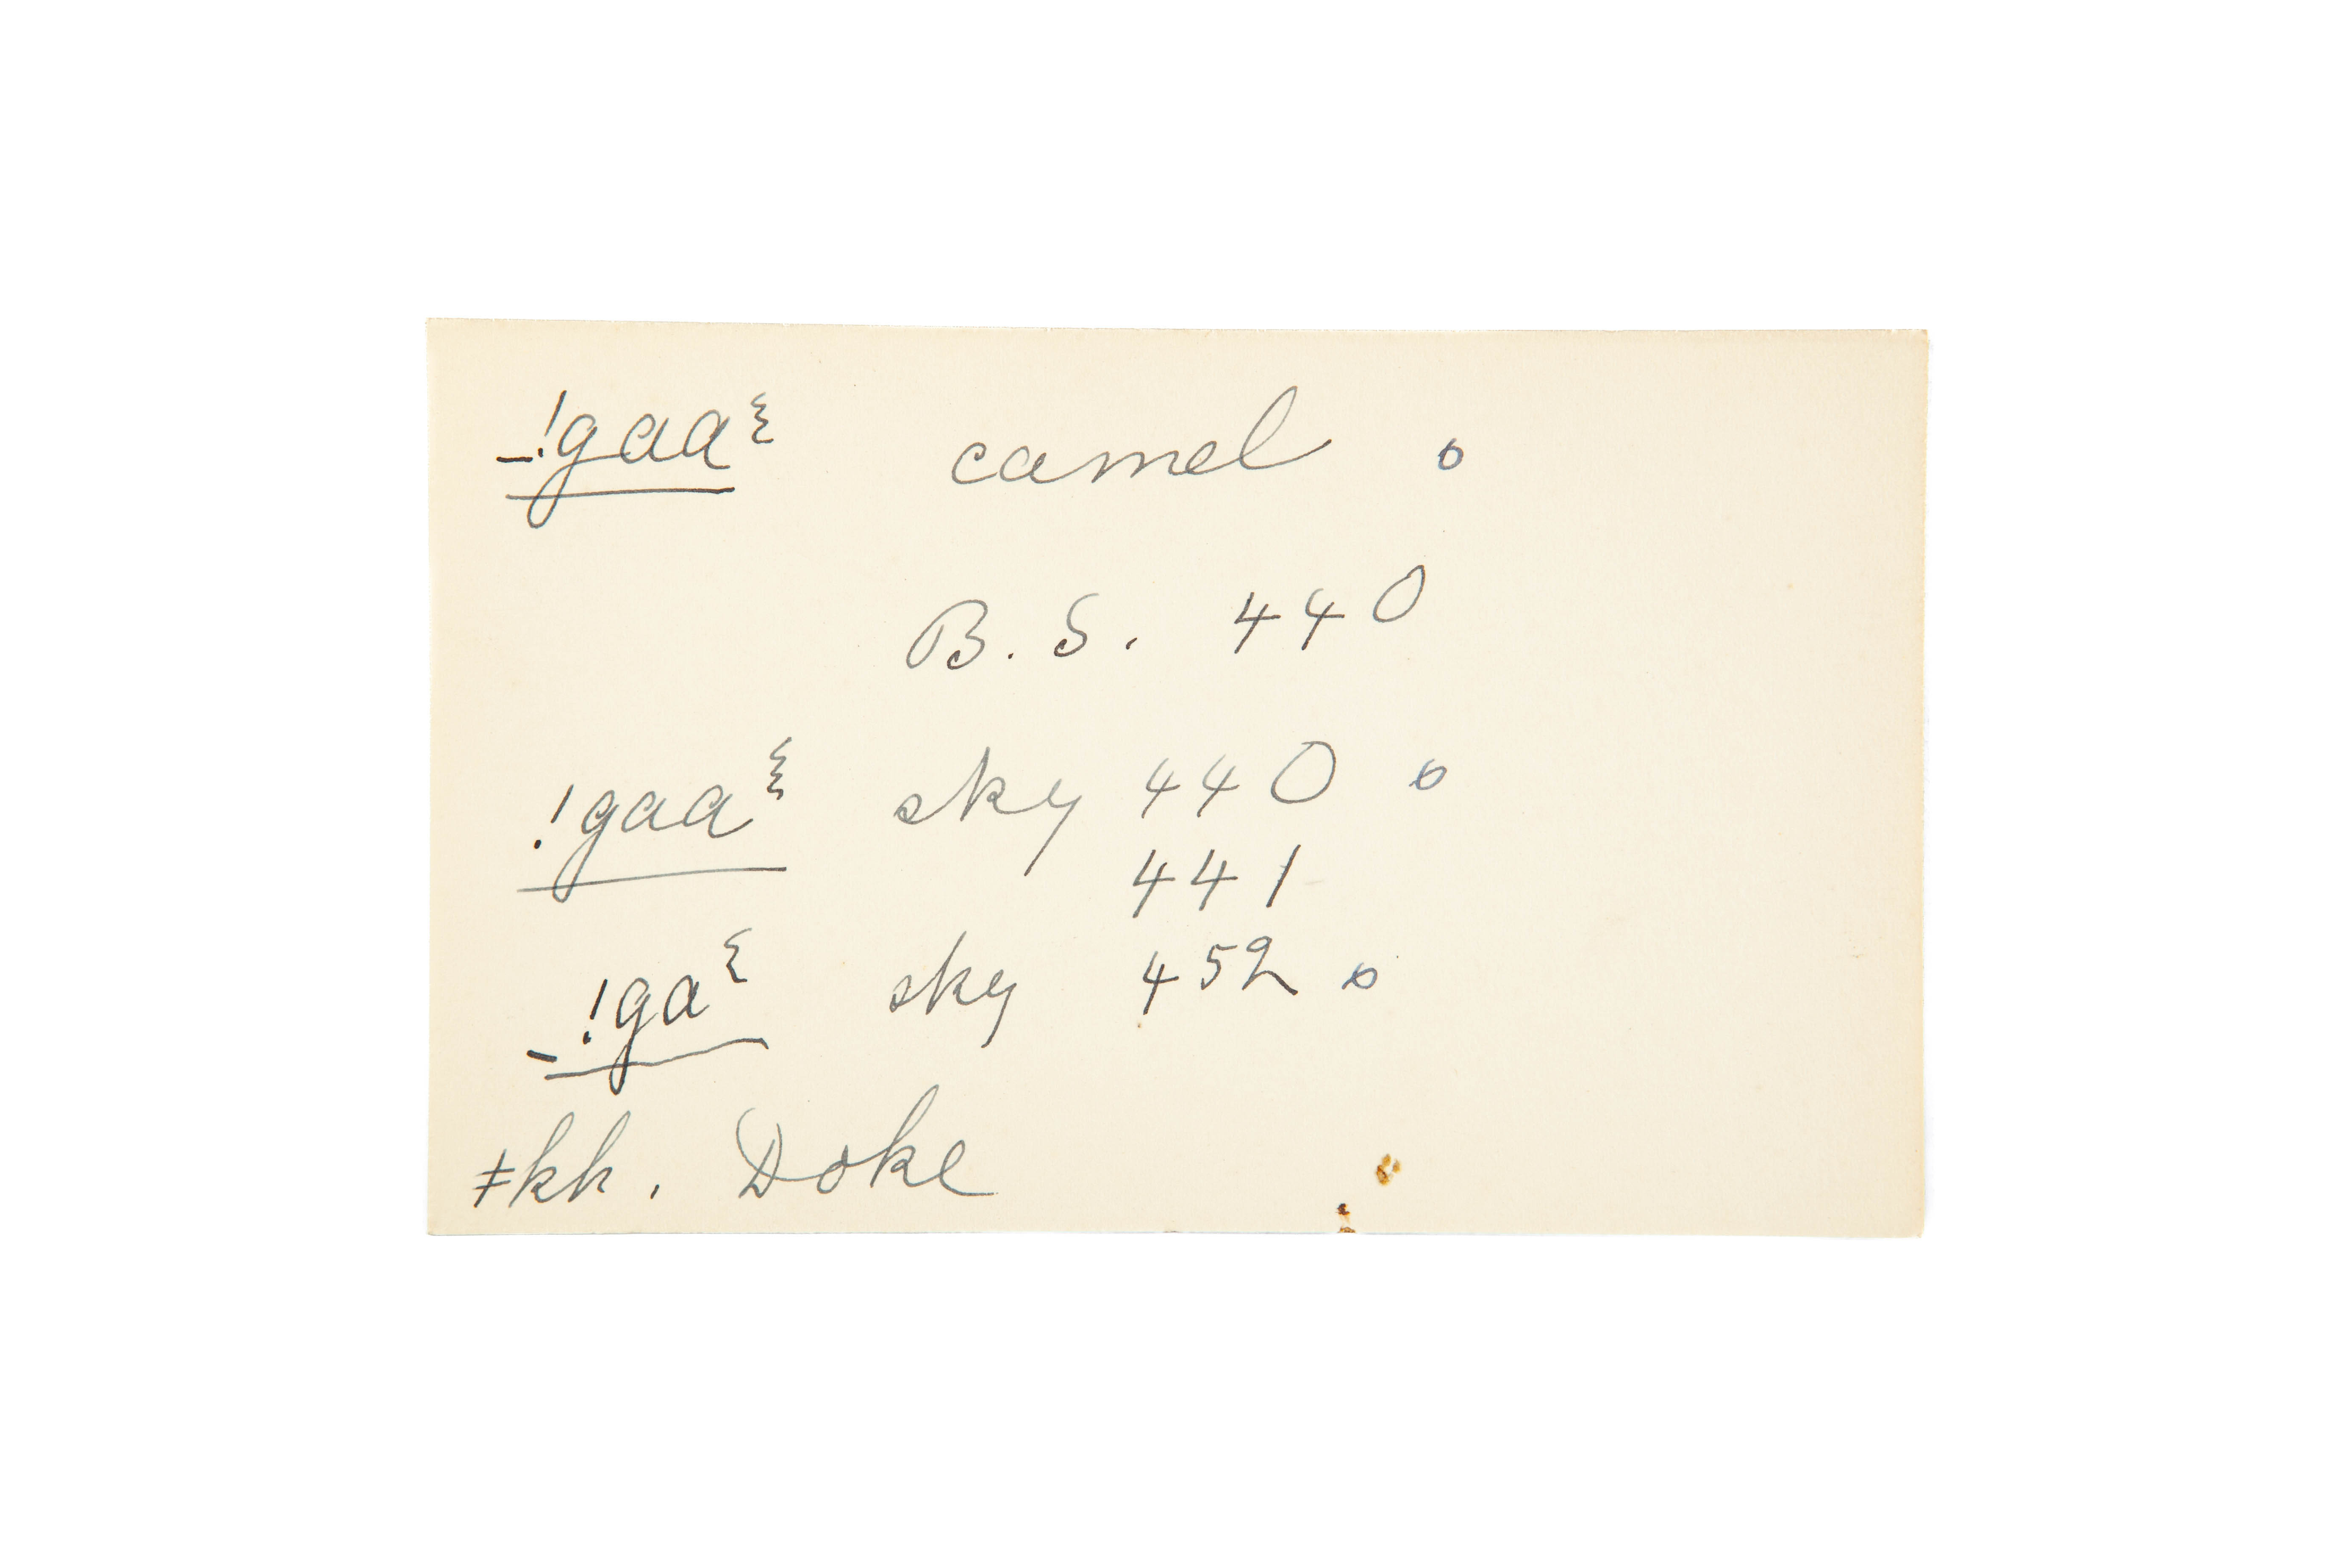 _!gaaᶓ camel o
B. S. 440
!gaaᶓ sky 440 o
441
_!gaᶓ sky 452 o
ǂkh. Doke